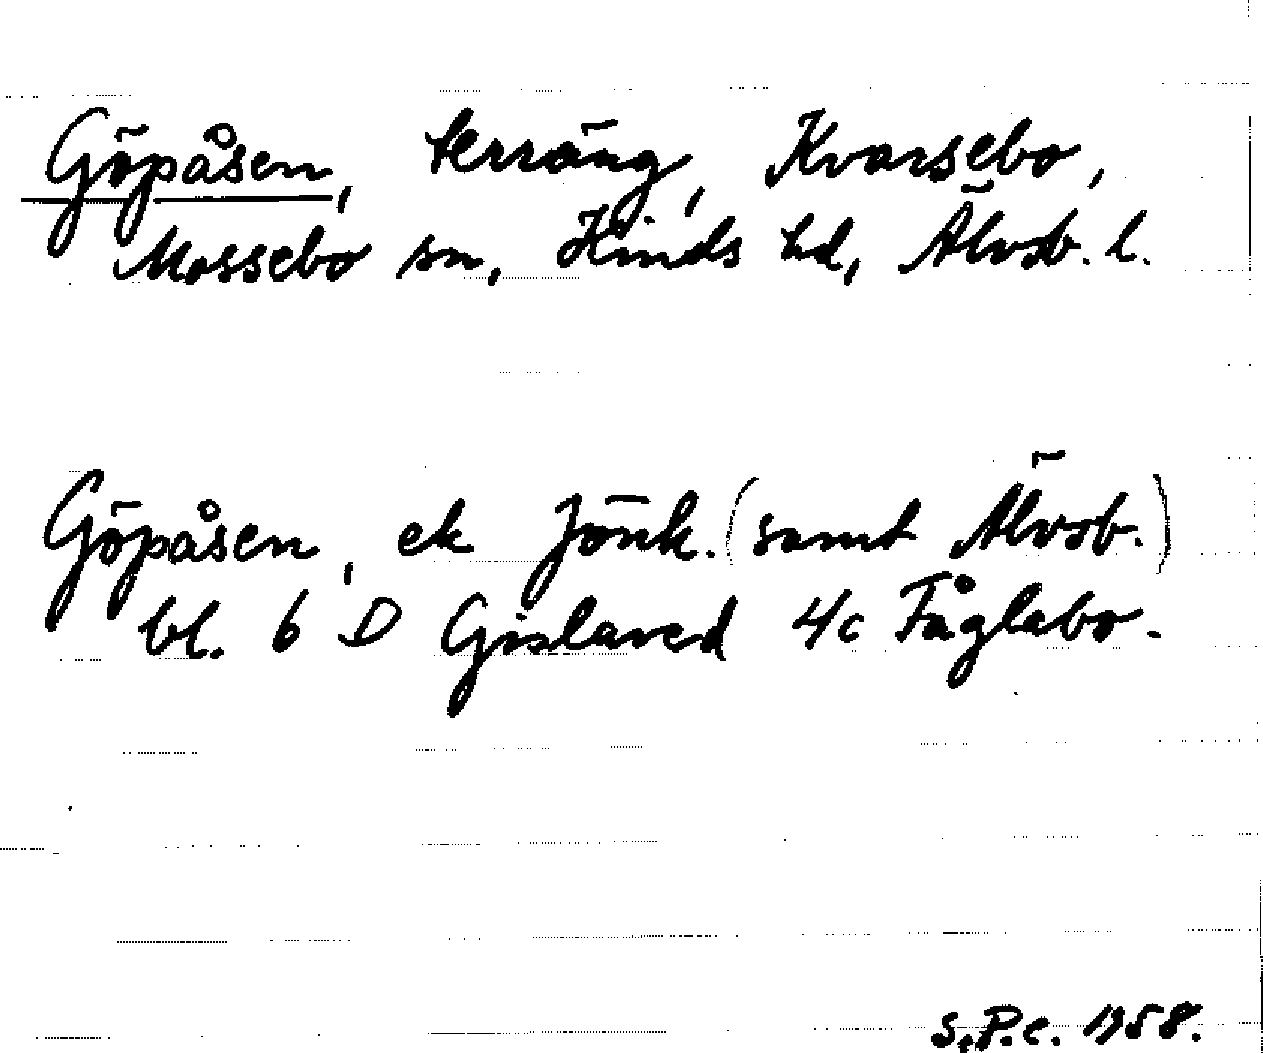 Göpåsen, terräng, Kvarsebo,
Mossebo sn, Kinds hd, Älvsb. l.
Göpåsen, ek Jönk. (samt Älvsb.)
bl. 6 D Gislaved 4c Fåglabo.
S.P.C. 1958.